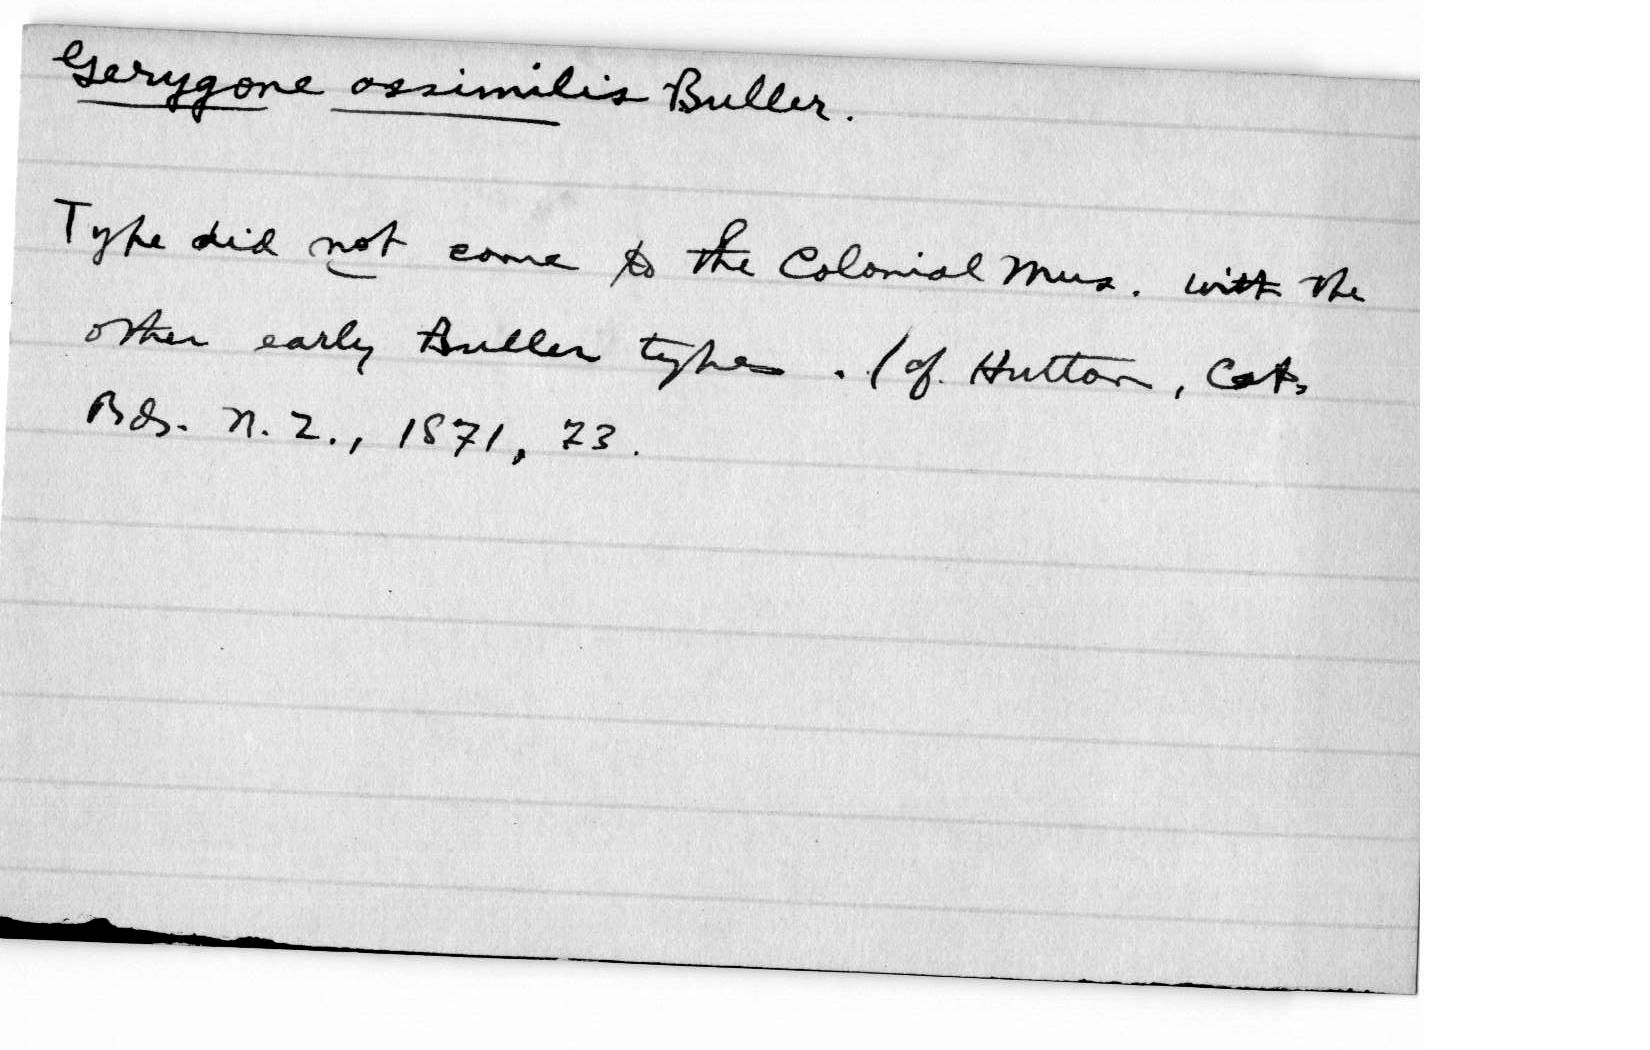 Gerygone assimilis Buller.
Type did not come to the Colonial Mus. with the
other early Buller types. (cf. Hutton, Cat.
Bds. N.Z., 1871, 73.